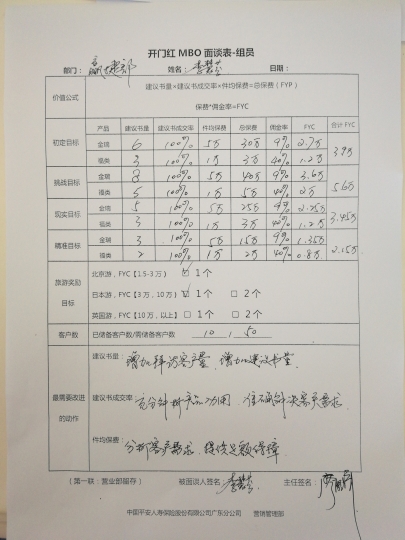 开门红 MBO 面谈表-组员
部门： 姓名： 日期：
价值公式
建议书量×建议书成交率×件均保费=总保费（FYP）
保费*佣金率=FYC
产品 建议书量 建议书成交率 件均保费 总保费 佣金率 FYC 合计 FYC
初定目标 金瑞 6 100% 5万 30万 9% 2.7万 3.9万
福类 3 100% 1万 3万 40% 1.2万
挑战目标 金瑞 8 100% 5万 40万 9% 3.6万 5.6万
福类 5 100% 1万 5万 40% 2万
现实目标 金瑞 5 100% 5万 25万 9% 2.25万 3.45万
福类 3 100% 1万 3万 40% 1.2万
精准目标 金瑞 3 100% 5万 15万 9% 1.35万 2.15万
福类 2 100% 1万 2万 40% 0.8万
旅游奖励目标
北京游，FYC【1.5-3万】 ☑ 1个
日本游，FYC【3万，10万】 ☑ 1个 □ 2个
英国游，FYC【10万，以上】 □ 1个 □ 2个
客户数 已储备客户数/需储备客户数 10 / 50
最需要改进的动作
建议书量： 增加拜访客户量，增加建议书量
建议书成交率： 客户需求
件均保费： 分析客户需求，提议足额保障
（第一联：营业部留存） 被面谈人签名： 主任签名：
中国平安人寿保险股份有限公司广东分公司 营销管理部